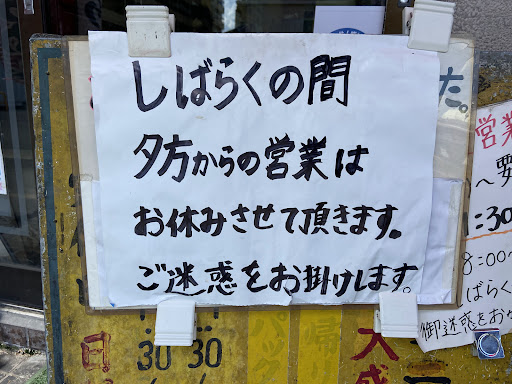 しばらくの間
夕方からの営業は
お休みさせて頂きます。
ご迷惑をお掛けします。
た。
営業
〜要
:30
8:00〜
ばらく
御迷惑をお
日
30 30
パック
大盛